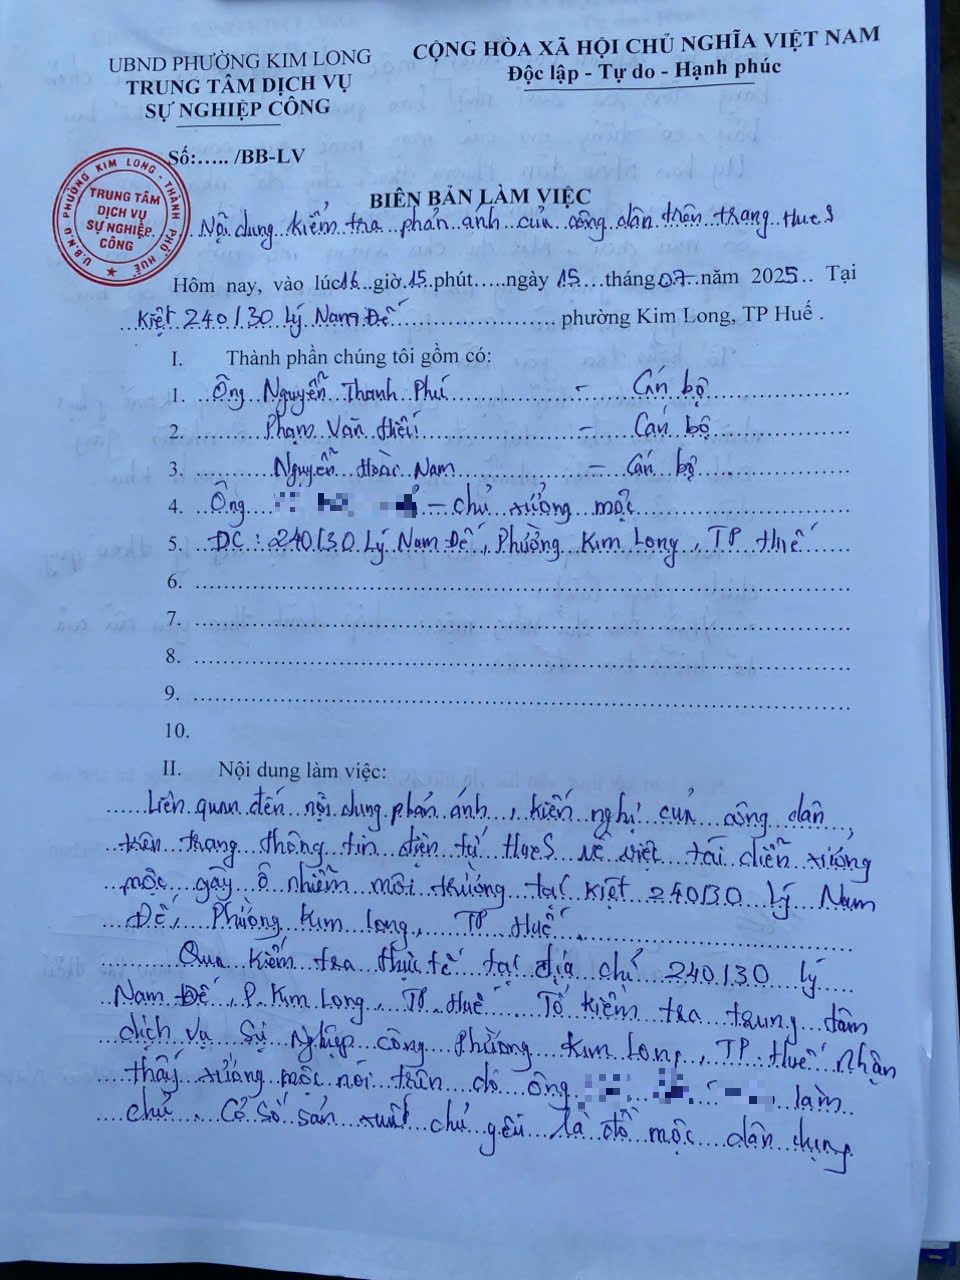 UBND PHƯỜNG KIM LONG
TRUNG TÂM DỊCH VỤ
SỰ NGHIỆP CÔNG
CỘNG HÒA XÃ HỘI CHỦ NGHĨA VIỆT NAM
Độc lập - Tự do - Hạnh phúc
Số:..... /BB-LV
U.B.N.D PHƯỜNG KIM LONG - THÀNH PHỐ HUẾ
TRUNG TÂM
DỊCH VỤ
SỰ NGHIỆP
CÔNG
BIÊN BẢN LÀM VIỆC
Nội dung kiểm tra phản ánh của công dân trên trang HueS
Hôm nay, vào lúc 16 giờ 15 phút.....ngày 15 tháng 07 năm 2025.. Tại
Kiệt 240/30 Lý Nam Đế phường Kim Long, TP Huế .
I. Thành phần chúng tôi gồm có:
1. Ông Nguyễn Thanh Phú - Cán bộ
2. Phạm Văn Hiếu - Cán bộ
3. Nguyễn Hoài Nam - Cán bộ
4. Ông - chủ xưởng mộc
5. ĐC : 240/30 Lý Nam Đế, Phường Kim Long, TP Huế
6.
7.
8.
9.
10.
II. Nội dung làm việc:
Liên quan đến nội dung phản ánh, kiến nghị của công dân,
trên trang thông tin điện tử HueS về việc tái diễn xưởng
mộc gây ô nhiễm môi trường tại Kiệt 240/30 Lý Nam
Đế, Phường Kim Long, TP Huế.
Qua kiểm tra thực tế tại địa chỉ 240/30 Lý
Nam Đế, P. Kim Long, TP Huế Tổ kiểm tra trung tâm
dịch vụ Sự Nghiệp công Phường Kim Long, TP Huế nhận
thấy xưởng mộc nói trên do ông làm
chủ. Cơ sở sản xuất chủ yếu là đồ mộc dân dụng